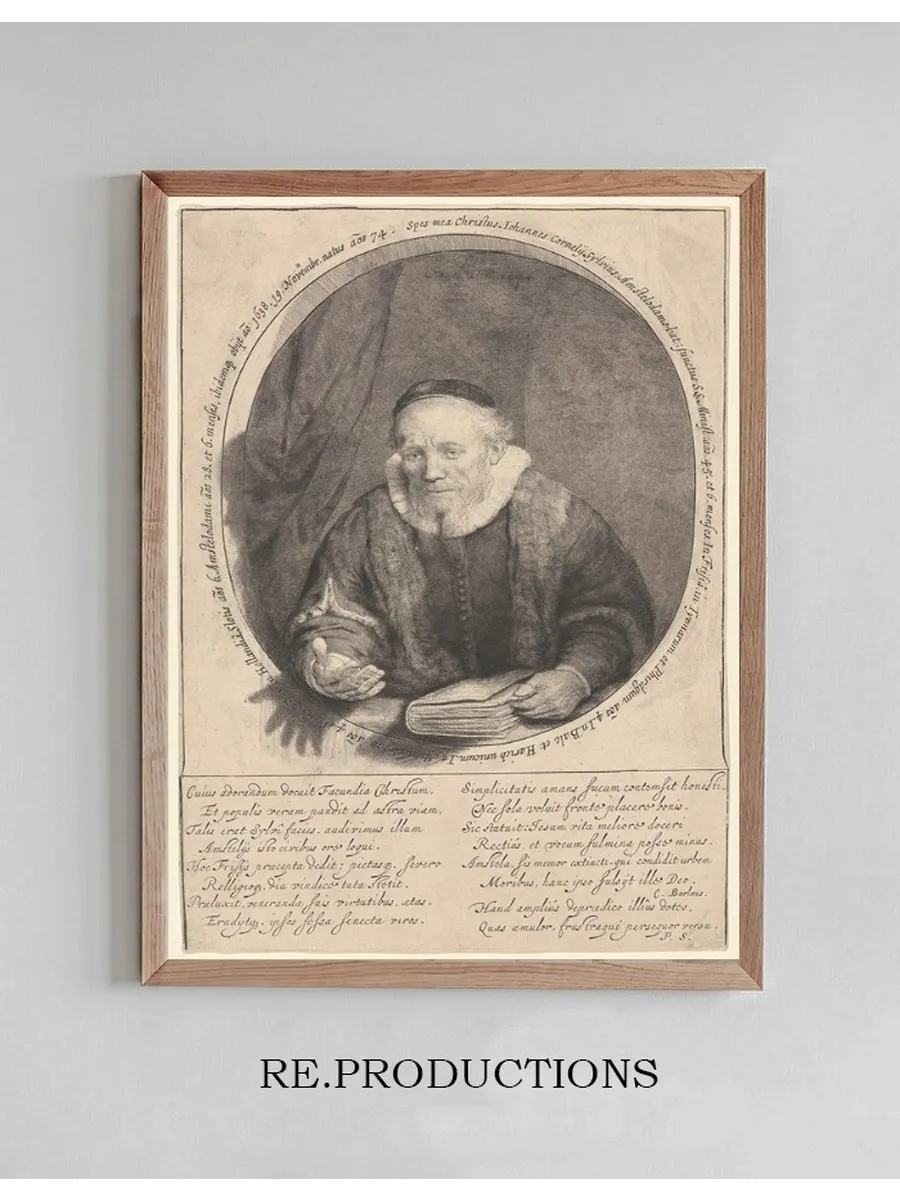 Spes mea Christus. Iohannes Cornelÿ Sylvius, Amstelodamobat: functus S.S. Minist: aos 45. et 6. menses. In Frisiâ, in Tyemarum et Phirdgum aos 4. In Balc et Harich unicum. In
aos 4.
in Hollandiâ, Slotis aos 6. Amstelodami aos 28. et 6. menses, ibidemq. obÿt ao 1638. 19 Novembr. natus aos 74.
Cuius adorandum docuit Facundia Christum,
Et populis veram pandit ad astra viam,
Talis erat Sylvi facies. audivimus illum
Amstelÿs isto civibus ore loqui.
Hoc Frisÿs præcepta dedit: pietasq. severo
Relligioq. diu vindice tuta stetit.
Præluxit, veneranda suis virtutibus, ætas.
Erudÿtq. ipsos fessa senecta viros.
Simplicitatis amans fucum contemsit honesti,
Nec sola voluit fronte placere bonis.
Sic statuit: Iesum vita meliore doceri
Rectius, et vocum fulmina posse minus.
Amstela, sis memor extincti. qui condidit urbem
Moribus, hanc ipso fulsÿt ille Deo.
C. Barlæus.
Haud amplius deprædico illius dotes,
Quas æmulor, frustraque persequor versu.
P. S.
RE.PRODUCTIONS